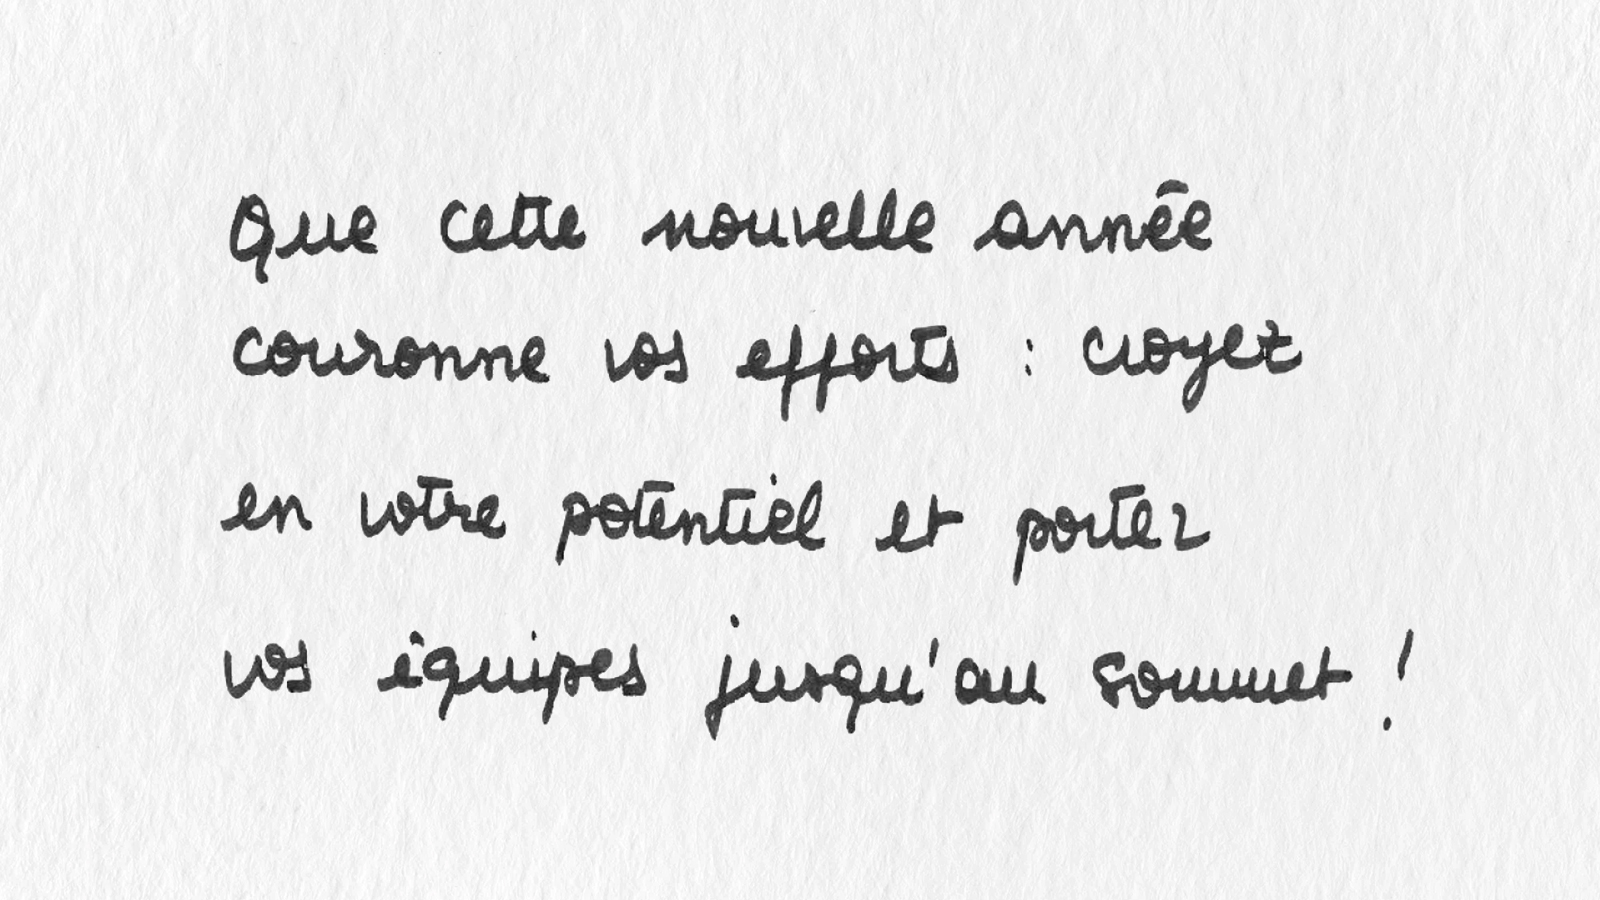 Que cette nouvelle année
couronne vos efforts : croyez
en votre potentiel et portez
vos équipes jusqu'au sommet !